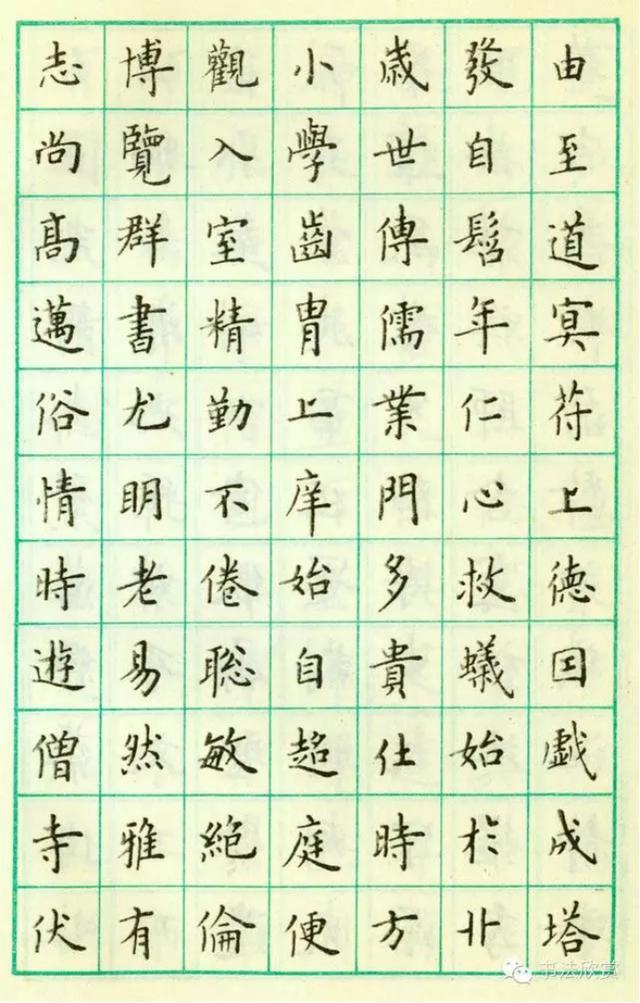 由至道冥苻上德因戯成塔
發自髫年仁心救蟻始於丱
歳世傳儒業門多貴仕時方
小學齒胄上庠始自趨庭便
觀入室精勤不倦聡敏絕倫
博覽群書尤明老易然雅有
志尚高邁俗情時遊僧寺伏
书法欣赏